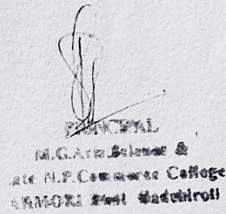 PRINCIPAL
M.G.Arts, Science &
ate N.P.Commerce College
ARMORI Gadchiroli